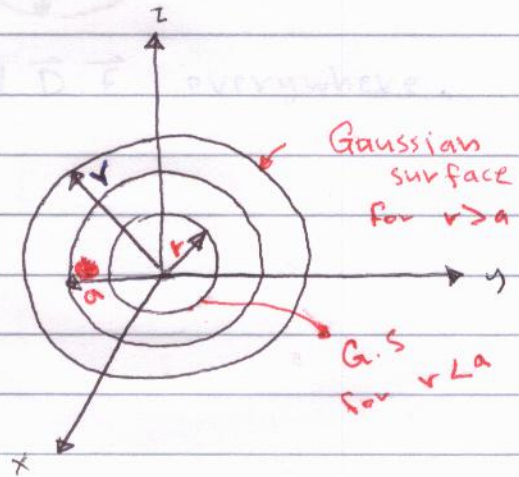 z
D E everywhere.
Gaussian
surface
for r>a
r
r
a
y
G.S
for r<a
x